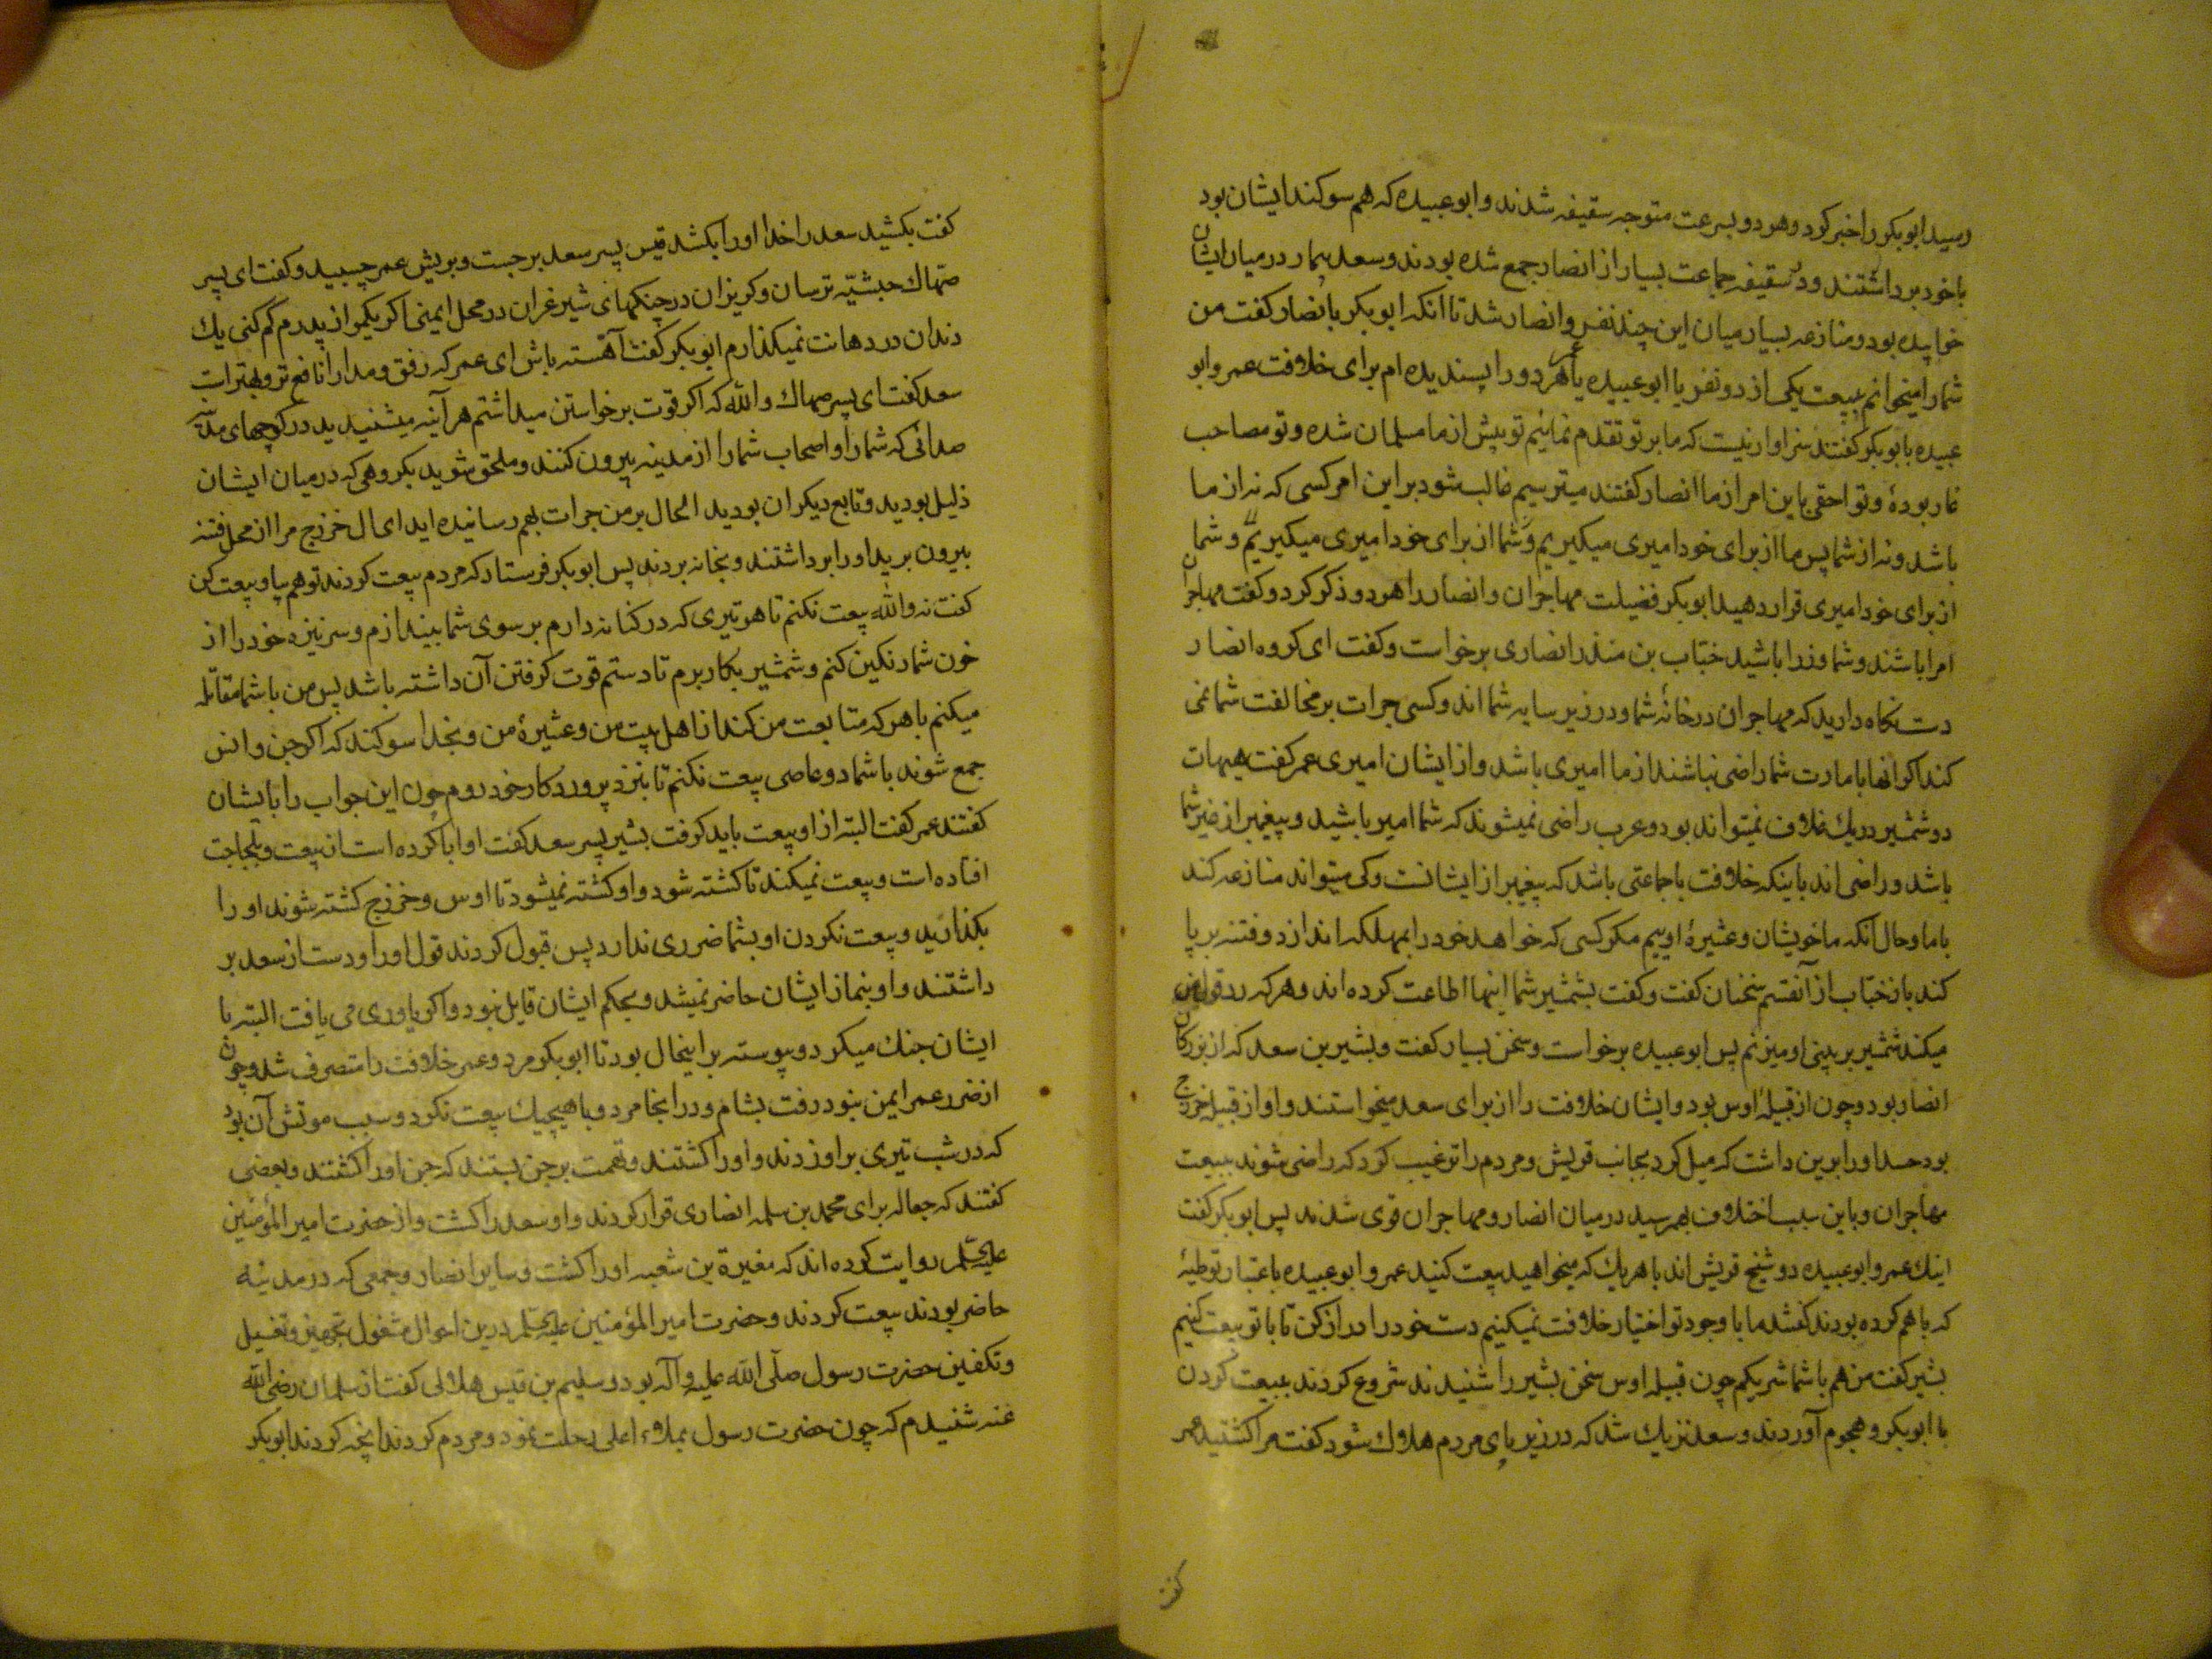 رسید ابوبکر را خبر کرد و هر دو بسرعت متوجه سقیفه شدند و ابوعبیده که هم سوکند ایشان بود
با خود برداشتند و در سقیفه جماعت بسیار از انصار جمع شده بودند و سعد بیمار در میان ایشان
خوابیده بود و منازعه بسیار میان این چند نفر و انصار شد تا انکه ابوبکر بانصار کفت من
شما را میخوانم ببیعت یکی از دو نفر یا ابوعبیده یا عمر هر دو را پسندیده ام برای خلافت عمر و ابو
عبیده بابوبکر کفتند سزاوار نیست که ما بر تو تقدم نمائیم تو پیش از ما مسلمان شده و تو مصاحب
غار بودهٔ و تو احقی باین امر از ما انصار کفتند میترسیم غالب شود بر این امر کسی که نه از ما
باشد و نه از شما پس ما از برای خود امیری میکیریم و شما از برای خود امیری میکیریم و شما
از برای خود امیری قرار دهید ابوبکر فضیلت مهاجران و انصار را هر دو ذکر کرد و کفت مهاجران
امرا باشند و شما وزرا باشید خبّاب بن منذر انصاری برخواست و کفت ای کروه انصار
دست نکاه دارید که مهاجران در خانهٔ شما و در زیر سایه شما اند و کسی جرات بر مخالفت شما نمی
کند اکر انها بامارت شما راضی نباشند از ما امیری باشد و از ایشان امیری عمر کفت هیهات
دو شمشیر در یك غلاف نمیتواند بود و عرب راضی نمیشوند که شما امیر باشید و پیغمبر از غیر شما
باشد و راضی اند باینکه خلافت با جماعتی باشد که پیغمبر از ایشانست و کی میتواند منازعه کند
با ما و حال آنکه ما خویشان و عشیرهٔ اوییم مکر کسی که خواهد خود را بمهلکه اندازد و فتنه برپا
کند باز خبّاب از آنقسم سخنان کفت و کفت بشمشیر شما اینها اطاعت کرده اند و هر که رد قول من
میکند شمشیر بر بینی او میزنم پس ابوعبیده برخواست و سخن بسیار کفت و بشیر بن سعد که از بزرکان
انصار بود و چون از قبیلهٔ اوس بود و ایشان خلافت را از برای سعد میخواستند و او از قبیله خزرج
بود حسد او را برین داشت که میل کرد بجانب قریش و مردم را ترغیب کرد که راضی شوند ببیعت
مهاجران و باین سبب اختلاف بهم رسید در میان انصار و مهاجران قوی شدند پس ابوبکر کفت
اینك عمر و ابوعبیده دو شیخ قریش اند با هر یك که میخواهید بیعت کنید عمر و ابوعبیده باعتبار توطیهٔ
که با هم کرده بودند کفتند ما با وجود تو اختیار خلافت نمیکنیم دست خود را دراز کن تا با تو بیعت کنیم
بشیر کفت من هم با شما شریکم چون قبیله اوس سخن بشیر را شنیدند شروع کردند ببیعت کردن
با ابوبکر و هجوم آوردند و سعد نزیك شد که در زیر پای مردم هلاك شود کفت مرا کشتید عمر
کفت
کفت بکشید سعد را خدا او را بکشد قیس پسر سعد برجست و بریش عمر چسبید و کفت ای پسر
صهاك حبشیّه ترسان و کریزان در جنکهای شیر غران در محل ایمنی اکر یکمو از پدرم کم کنی یك
دندان در دهانت نمیکذارم ابوبکر کفت آهسته باش ای عمر که رفق و مدارا نافع تر و بهتر است
سعد کفت ای پسر صهاك والله که اکر قوت برخواستن میداشتم هر آینه میشنیدید در کوچهای مدینه
صدائی که شما را و اصحاب شما را از مدینه بیرون کنند و ملحق شوید بکروهی که در میان ایشان
ذلیل بودید و تابع دیکران بودید الحال بر من جرات بهم رسانیده اید ای ال خزرج مرا از محل فتنه
بیرون برید او را برداشتند و بخانه بردند پس ابوبکر فرستاد که مردم بیعت کردند تو هم بیا و بیعت کن
کفت نه والله بیعت نکنم تا هر تیری که در کنانه دارم بر سوی شما بیندازم و سر نیزه خود را از
خون شما رنکین کنم و شمشیر بکار برم تا دستم قوت کرفتن آن داشته باشد پس من با شما مقاتله
میکنم با هر که متابعت من کند از اهل بیت من و عشیرهٔ من و بخدا سوکند که اکر جن و انس
جمع شوند با شما دو عاصی بیعت نکنم تا بنزد پروردکار خود روم چون این جواب را بایشان
کفتند عمر کفت البته از او بیعت باید کرفت بشیر پسر سعد کفت او ابا کرده است از بیعت و بلجاجت
افتاده است و بیعت نمیکند تا کشته شود و او کشته نمیشود تا اوس و خزرج کشته شوند او را
بکذارید و بیعت نکردن او بشما ضرری ندارد پس قبول کردند قول او را و دست از سعد بر
داشتند و او بنماز ایشان حاضر نمیشد و بحکم ایشان قایل نبود و اکر یاوری می یافت البته با
ایشان جنك میکرد و پیوسته بر اینحال بود تا ابوبکر مرد و عمر خلافت را متصرف شد و چون
از ضرر عمر ایمن نبود رفت بشام و در انجا مرد و با هیچیك بیعت نکرد و سبب موتش آن بود
که در شب تیری بر او زدند و او را کشتند و تهمت بر جن بستند که جن او را کشتند و بعضی
کفتند که جعاله برای محمد بن سلمه انصاری قرار کردند و او سعد را کشت و از حضرت امیر المؤمنین
علیه السلم روایت کرده اند که مغیرة بن شعبه او را کشت و سایر انصار و جمعی که در مدینه
حاضر بودند بیعت کردند و حضرت امیر المؤمنین علیه السلم درین احوال مشغول تجهیز و تغسیل
و تکفین حضرت رسول صلّی الله علیه و آله بود و سلیم بن قیس هلالی کفت از سلمان رضی الله
عنه شنیدم که چون حضرت رسول بملاء اعلی رحلت نمود و مردم کردند انچه کردند ابوبکر